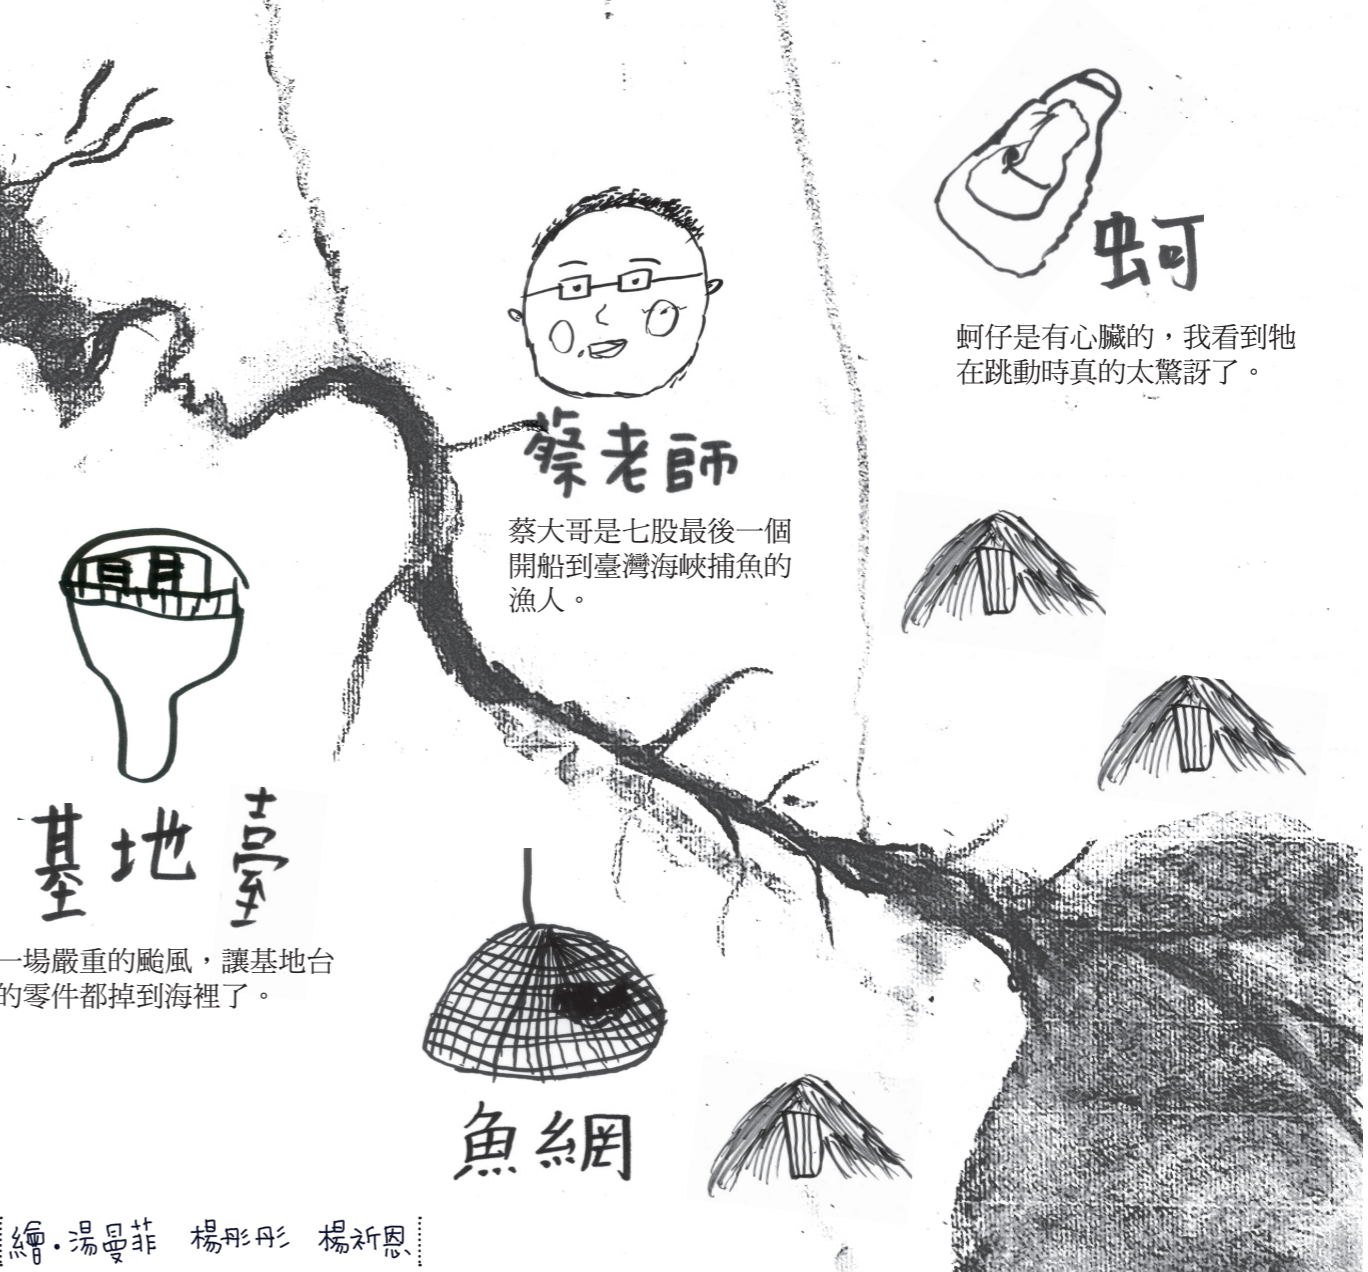 蚵
蚵仔是有心臟的，我看到牠
在跳動時真的太驚訝了。
蔡老師
蔡大哥是七股最後一個
開船到臺灣海峽捕魚的
漁人。
基地臺
一場嚴重的颱風，讓基地台
的零件都掉到海裡了。
魚網
繪．湯曼菲 楊彤彤 楊祈恩